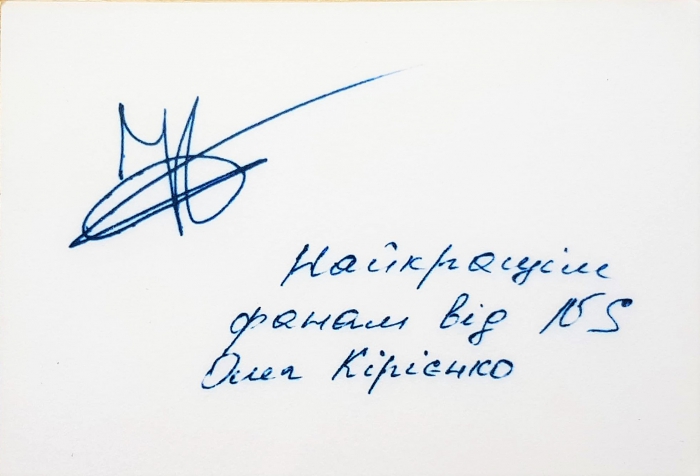 Найкращім
фанам від №5
Оля Кірієнко